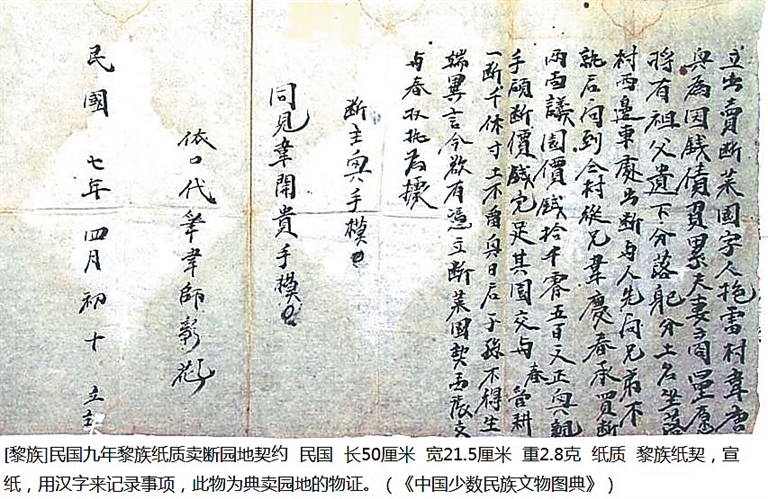 立出賣断菜園字人抱雷村韋唐
與為因錢債買累夫妻商量愿
將有祖父遺下分落己分土名坐落
村西邊東處出断与人先问兄弟不
就后问到仝村從兄韋慶春承買断
両面議園價錢拾千零五百文正與親
手領断價錢完足其園交与春管耕
一断千休寸土不畱與日后子孫不得生
端異言今欲有憑立断菜園契壹張交
与春收执為據
断主與手模
同見韋開貴手模
依口代筆韋師彰花
民國七年四月初十立
[黎族]民国九年黎族纸质卖断园地契约 民国 长50厘米 宽21.5厘米 重2.8克 纸质 黎族纸契，宣
纸，用汉字来记录事项，此物为典卖园地的物证。（《中国少数民族文物图典》）